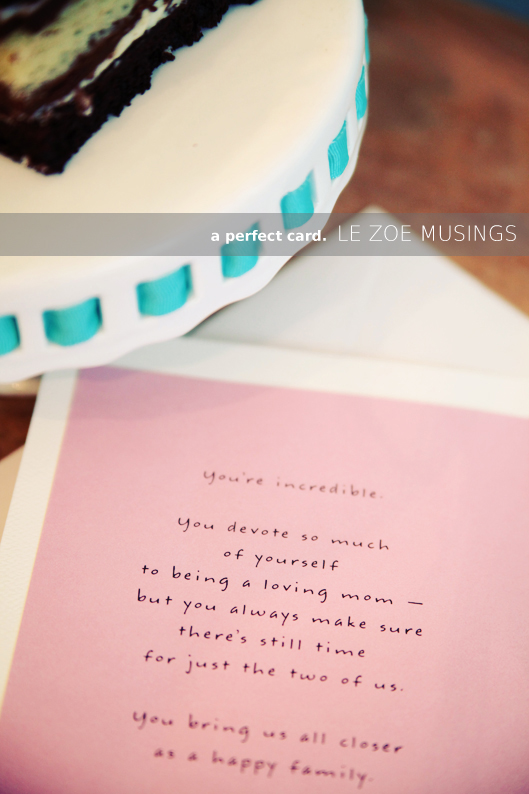 a perfect card. LE ZOE MUSINGS
you're incredible.
you devote so much
of yourself
to being a loving mom —
but you always make sure
there's still time
for just the two of us.
you bring us all closer
as a happy family.